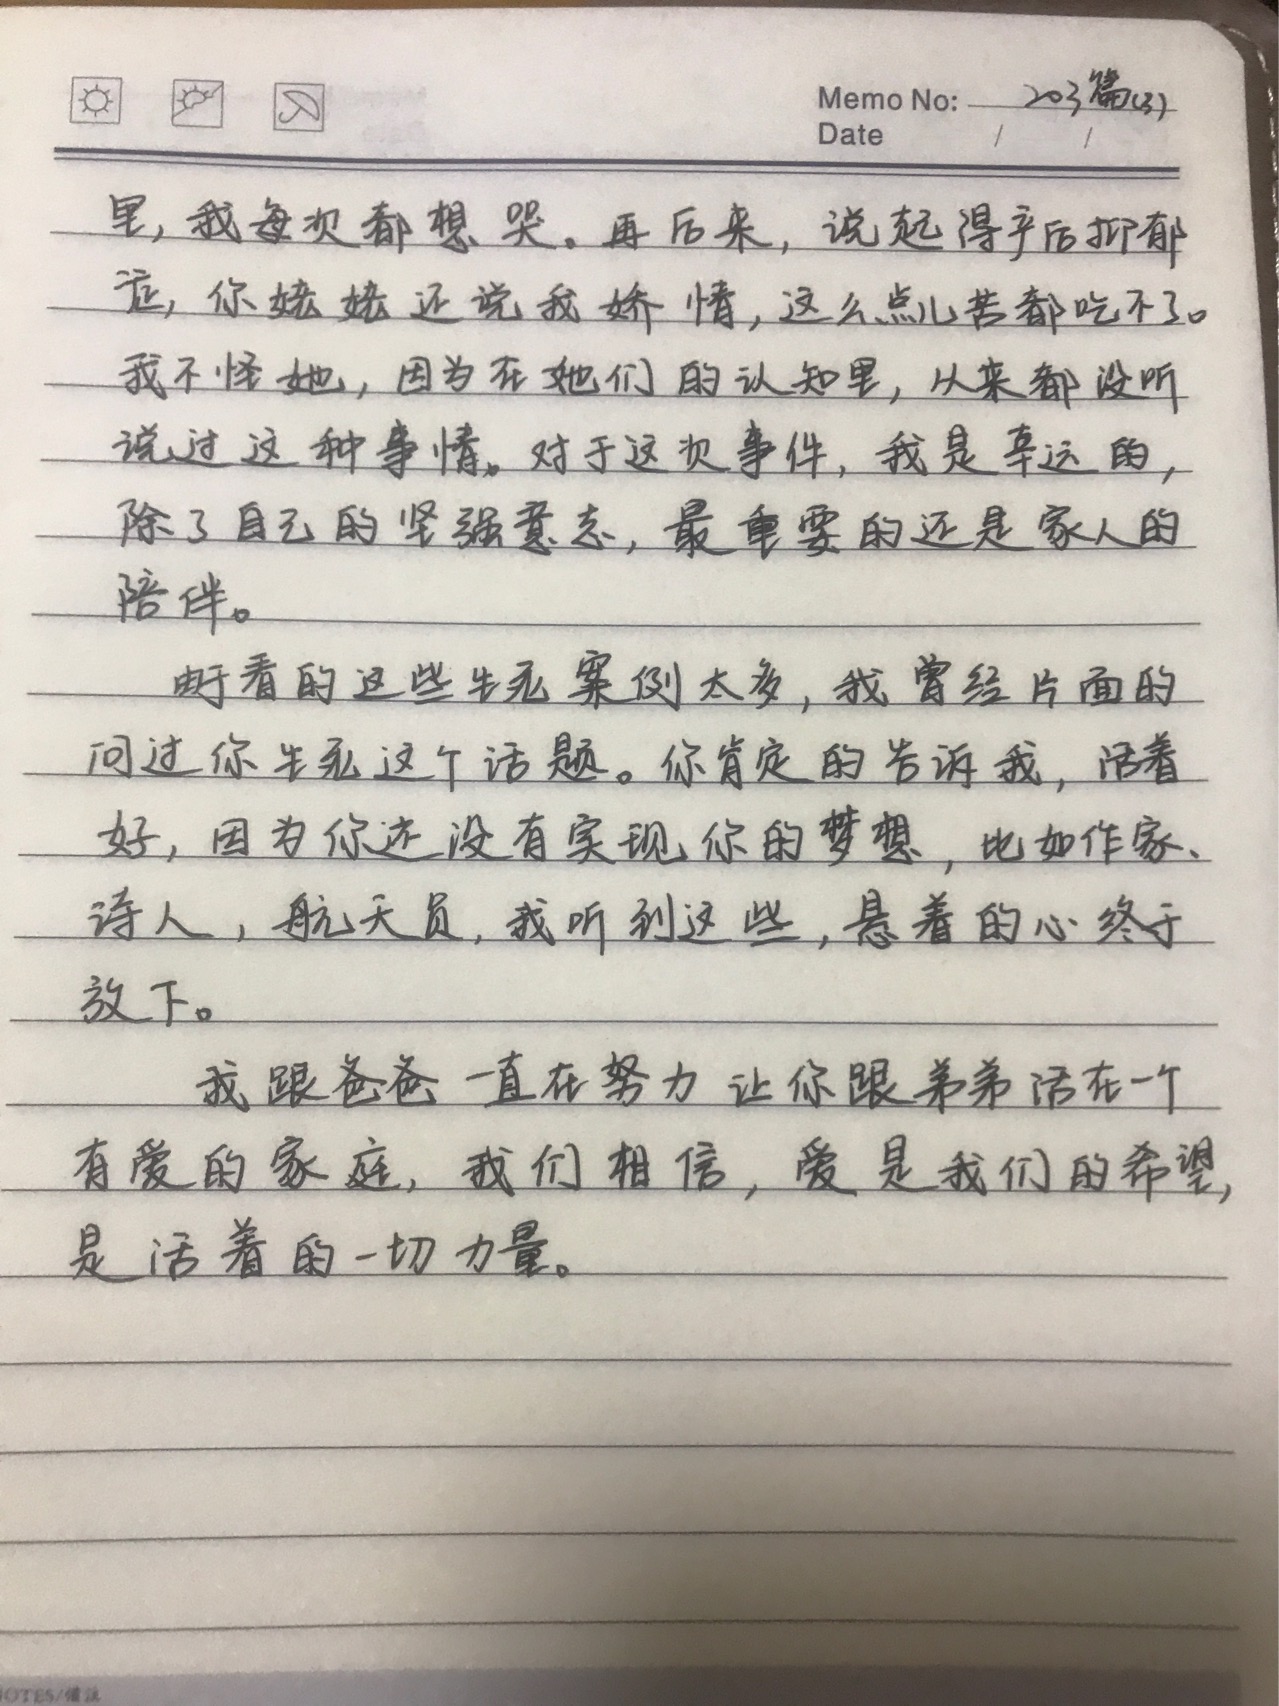 Memo No: 203篇(3)
Date / /
里,我每次都想哭。再后来,说起得产后抑郁
症,你姥姥还说我娇情,这么点儿苦都吃不了。
我不怪她,因为在她们的认知里,从来都没听
说过这种事情。对于这次事件,我是幸运的,
除了自己的坚强意志,最重要的还是家人的
陪伴。
由于看的这些生死案例太多,我曾经片面的
问过你生死这个话题。你肯定的告诉我,活着
好,因为你还没有实现你的梦想,比如作家、
诗人,航天员,我听到这些,悬着的心终于
放下。
我跟爸爸一直在努力让你跟弟弟活在一个
有爱的家庭,我们相信,爱是我们的希望,
是活着的一切力量。
NOTES/备注